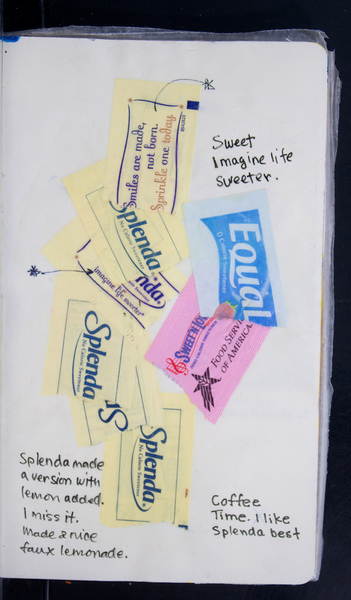 Smiles are made,
not born.
Sprinkle one today.
Sweet
Imagine life
sweeter.
Splenda
No Calorie Sweetener
Equal
0 Calorie Sweetener
nda.
imagine life sweeter
SWEET'N LOW
FOOD SERVI
OF AMERICA
Splenda
No Calorie Sweetener
Splenda
No Calorie Sweetener
Splenda made
a version with
lemon added.
I miss it.
Made a nice
faux lemonade.
Coffee
Time. I like
Splenda best